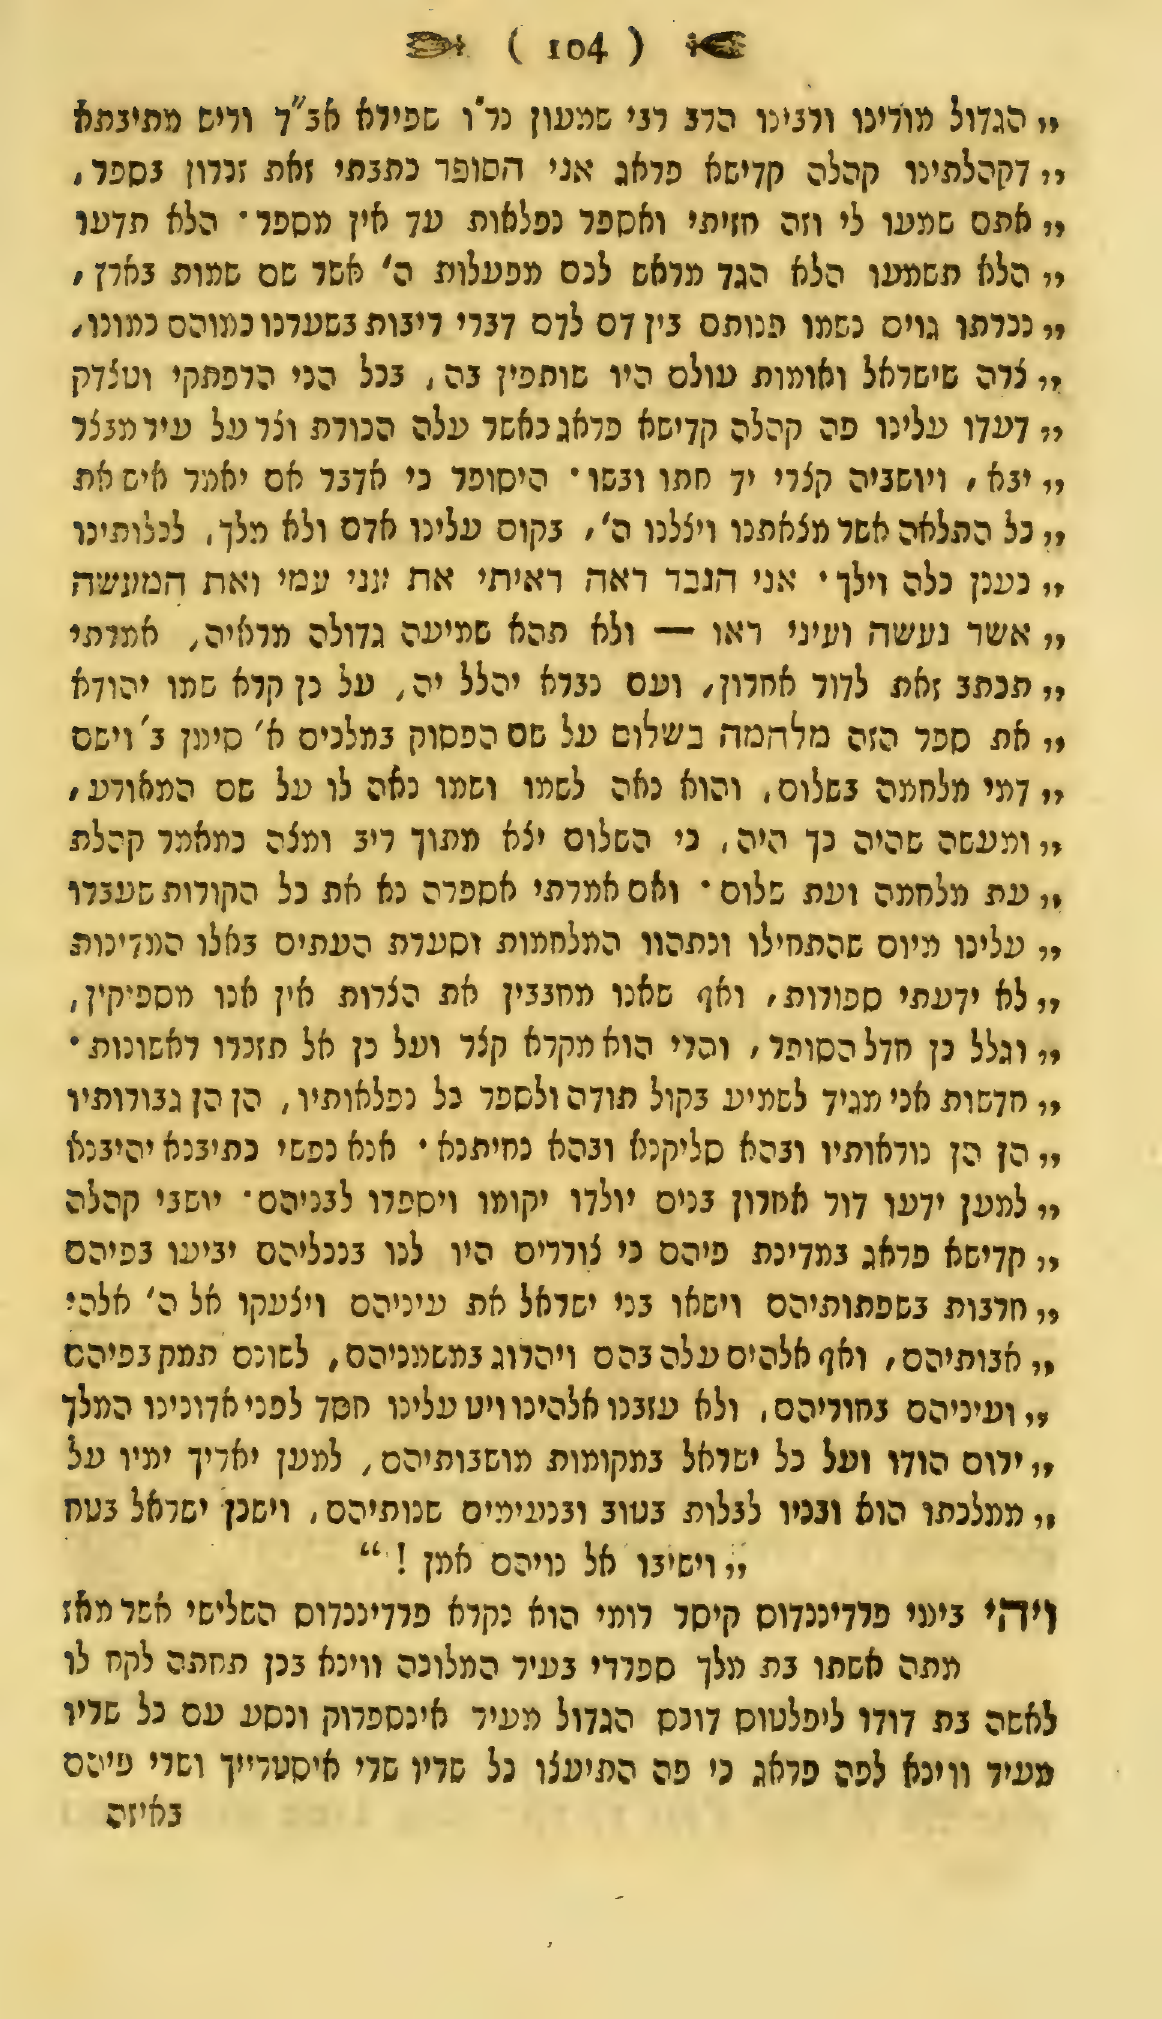 ( 104 )
„ הגדול מורינו ורבינו הרב רבי שמעון נר"ו שפירא אב"ד וריש מתיבתא
„ דקהלתינו קהלה קדישא פראג אני הסופר כתבתי זאת זכרון בספר,
„ אתם שמעו לי וזה חזיתי ואספר נפלאות עד אין מספר· הלא תדעו
„ הלא תשמעו הלא הגד מראש לכם מפעלות ה' אשר שם שמות בארץ,
„ נכרתו גוים נשמו פנותם בין דם לדם דברי ריבות בשערנו כמוהם כמונו,
„ צרה שישראל ואומות עולם היו שותפין בה, בכל הני הרפתקי וטצדק
„ דעדו עלינו פה קהלה קדישא פראג כאשר עלה הכורת וצר על עיר מבצר
„ יבא, ויושביה קצרי יד חתו ובשו· היסופר כי אדבר אם יאמר איש את
„ כל התלאה אשר מצאתנו ויצלנו ה', בקום עלינו אדם ולא מלך, לכלותינו
„ כענן כלה וילך· אני הגבר ראה ראיתי את עני עמי ואת המעשה
„ אשר נעשה ועיני ראו — ולא תהא שמיעה גדולה מראיה, אמרתי
„ תכתב זאת לדור אחרון, ועם נברא יהלל יה, על כן קרא שמו יהודא
„ את ספר הזה מלחמה בשלום על שם הפסוק במלכים א' סימן ב' וישם
„ דמי מלחמה בשלום, והוא נאה לשמו ושמו נאה לו על שם המאורע,
„ ומעשה שהיה כך היה, כי השלום יצא מתוך ריב ומצה כמאמר קהלת
„ עת מלחמה ועת שלום· ואם אמרתי אספרה נא את כל הקורות שעברו
„ עלינו מיום שהתחילו ונתהוו המלחמות וסערת העתים באלו המדינות
„ לא ידעתי ספורות, ואף שאנו מחבבין את הצרות אין אנו מספיקין,
„ וגלל כן חדל הסופר, והרי הוא מקרא קצר ועל כן אל תזכרו ראשונות·
„ חדשות אני מגיד לשמיע בקול תודה ולספר כל נפלאותיו, הן הן גבורותיו
„ הן הן נוראותיו ובהא סליקנא ובהא נחיתנא· אנא נפשי כתיבנא יהיבנא
„ למען ידעו דור אחרון בנים יולדו יקומו ויספרו לבניהם· יושבי קהלה
„ קדישא פראג במדינת פיהם כי צוררים היו לנו בנכליהם יביעו בפיהם
„ חרבות בשפתותיהם וישאו בני ישראל את עיניהם ויצעקו אל ה' אלהי
„ אבותיהם, ואף אלהים עלה בהם ויהרוג במשמניהם, לשונם תמק בפיהם
„ ועיניהם בחוריהם, ולא עזבנו אלהינו ויט עלינו חסד לפני אדונינו המלך
„ ירום הודו ועל כל ישראל במקומות מושבותיהם, למען יאריך ימיו על
„ ממלכתו הוא ובניו לבלות בטוב ובנעימים שנותיהם, וישכן ישראל בטח
„ וישיבו אל נויהם אמן ! “
ויהי בימי פרדיננדוס קיסר רומי הוא נקרא פרדיננדוס השלישי אשר מאז
מתה אשתו בת מלך ספרדי בעיר המלוכה ווינא בכן תחתה לקח לו
לאשה בת דודו ליפלטוס דוכס הגדול מעיר אינספרוק ונסע עם כל שריו
מעיר ווינא לפה פראג כי פה התיעצו כל שריו שרי איסטרייך ושרי פיהם
באיזה